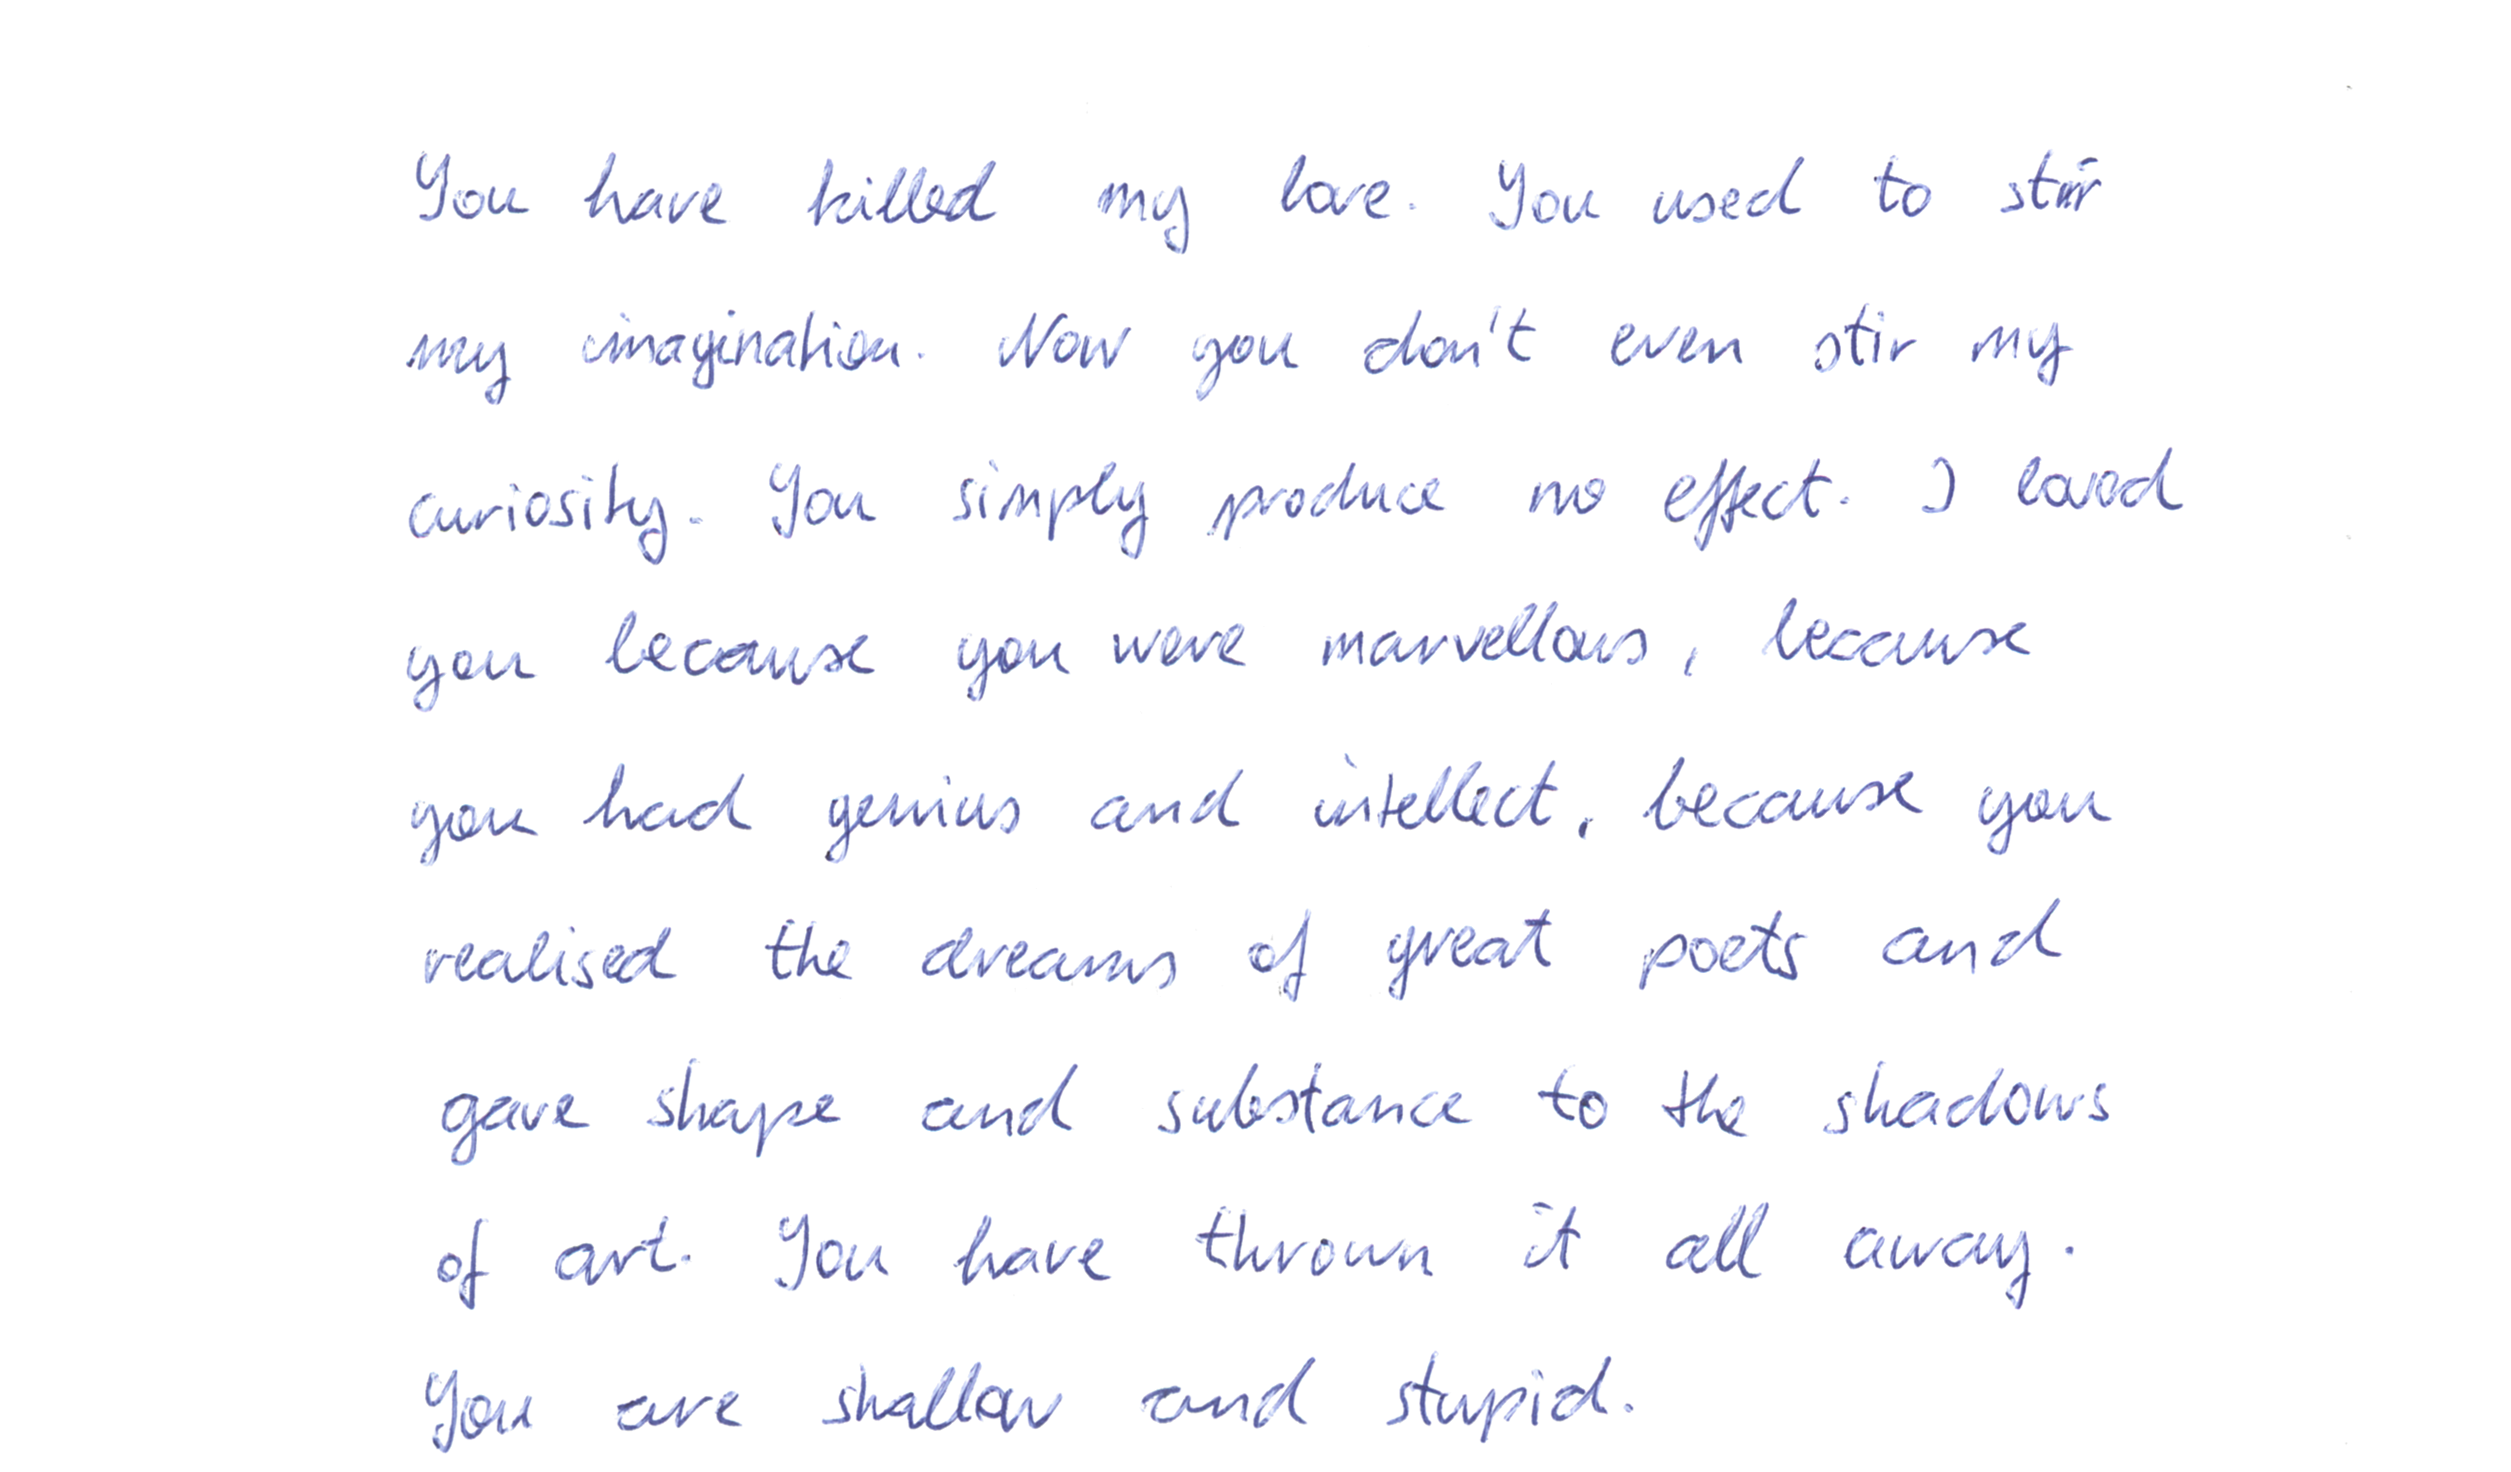 You have killed my love. You used to stir
my imagination. Now you don't even stir my
curiosity. You simply produce no effect. I loved
you because you were marvellous, because
you had genius and intellect, because you
realised the dreams of great poets and
gave shape and substance to the shadows
of art. You have thrown it all away.
You are shallow and stupid.